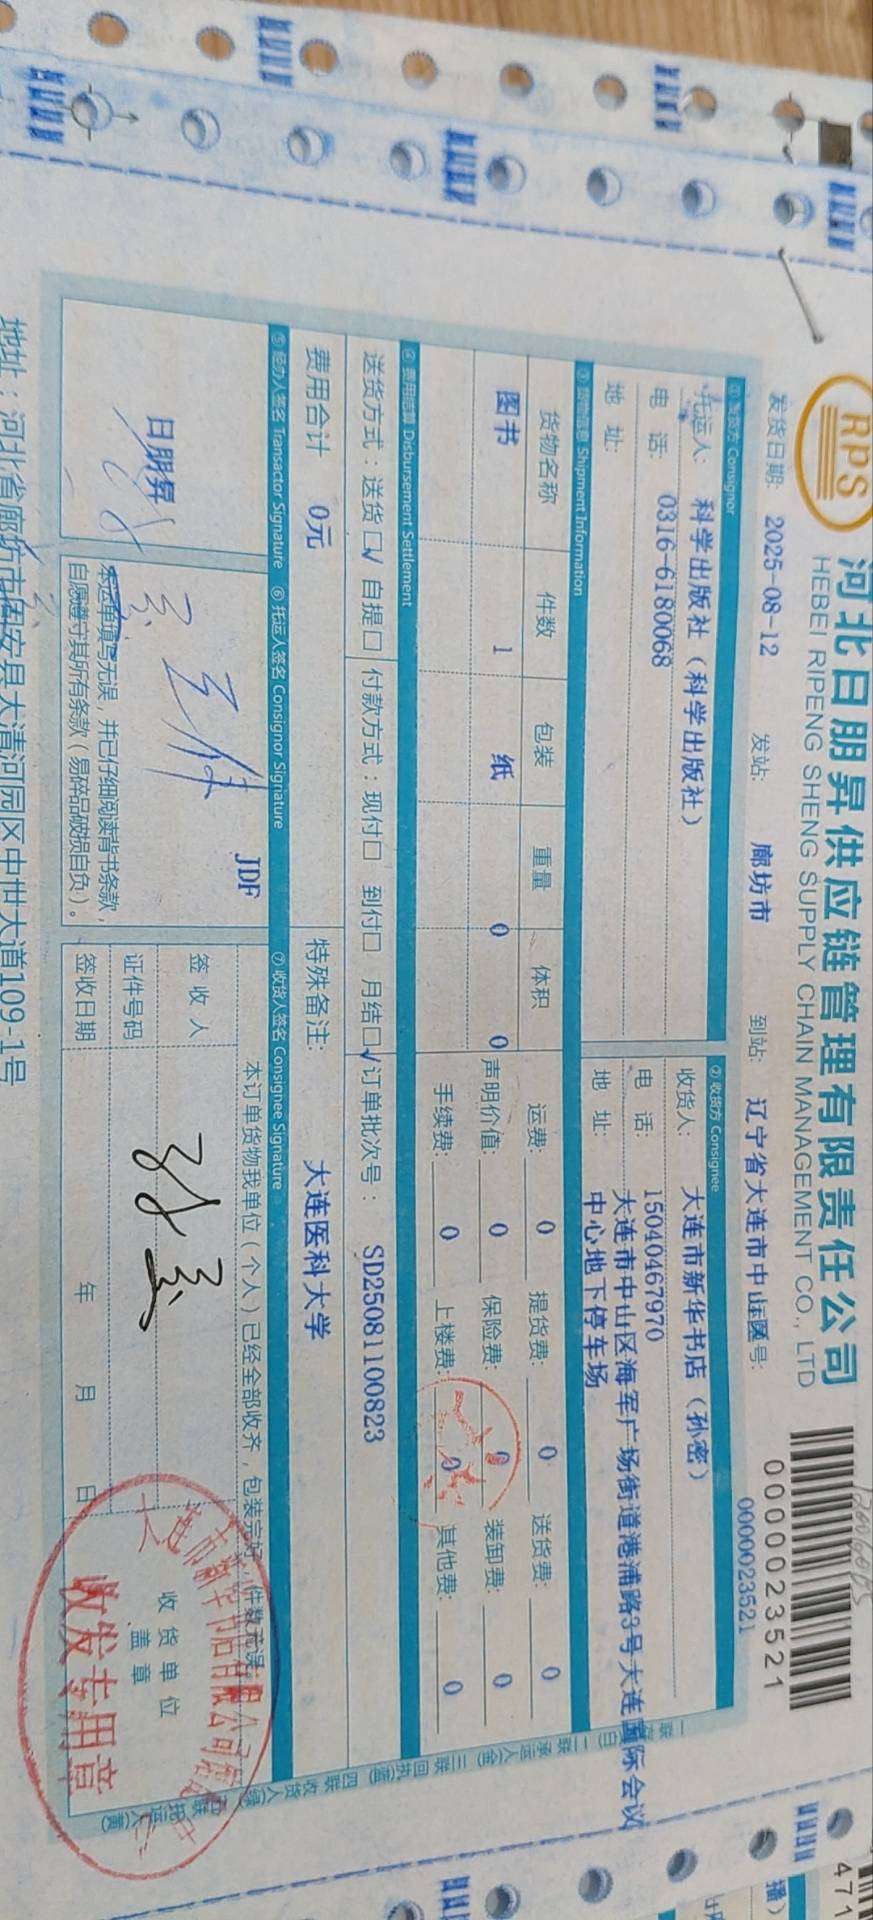 RPS
河北日朋昇供应链管理有限责任公司
HEBEI RIPENG SHENG SUPPLY CHAIN MANAGEMENT CO., LTD
0000023521
发货日期: 2025-08-12 发站: 廊坊市 到站: 辽宁省大连市中山区 号: 0000023521
① 发货方 Consignor
托运人: 科学出版社（科学出版社）
电 话: 0316-6180068
地 址:
② 收货方 Consignee
收货人: 大连市新华书店（孙密）
电 话: 15040467970
地 址: 大连市中山区海军广场街道港浦路3号大连国际会议
中心地下停车场
③ 货物信息 Shipment Information
货物名称 件数 包装 重量 体积
图书 1 纸 0 0
运费: 0 提货费: 0 送货费: 0
声明价值: 0 保险费: 0 装卸费: 0
手续费: 0 上楼费: 0 其他费: 0
④ 费用结算 Disbursement Settlement
送货方式：送货□√ 自提□ 付款方式：现付□ 到付□ 月结□√ 订单批次号： SD25081100823
费用合计 0元 特殊备注: 大连医科大学
⑤ 经办人签名 Transactor Signature ⑥ 托运人签名 Consignor Signature ⑦ 收货人签名 Consignee Signature
日朋昇
JDF
本运单填写无误，并已仔细阅读背书条款，
自愿遵守其所有条款（易碎品破损自负）。
本订单货物我单位（个人）已经全部收齐，包装完好，件数无误。
签 收 人
证件号码
签收日期 年 月 日
收货单位
盖章
收发专用章
地址：河北省廊坊市固安县大清河园区中世大道109-1号
471
播）